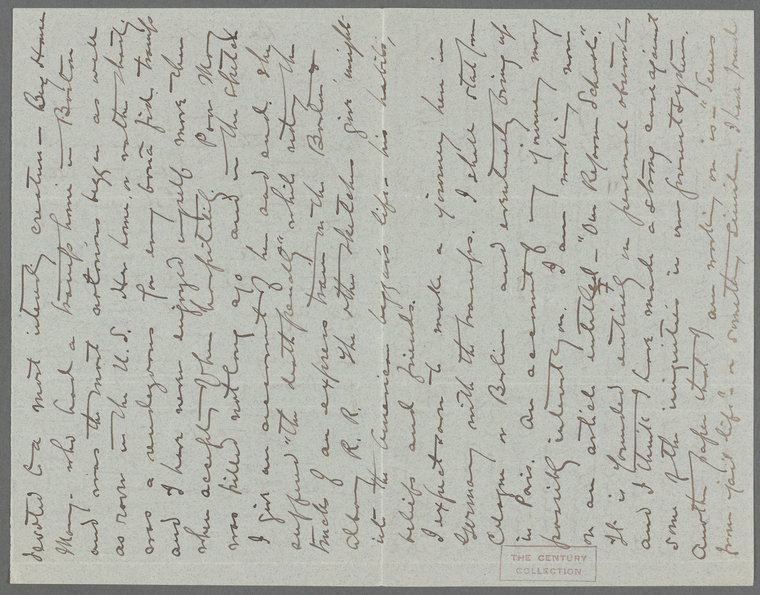 devoted to a most interesting creature — Big Home
Mary — who had a tramps home in Boston
and was the most notorious beggar as well
as rover in the U.S. Her home, or rather shanty,
was a rendezvous for every bonâ fide tramp
and I have never enjoyed myself more than
when accepting of her hospitality. Poor Mary
was killed not long ago and in the sketch
I give an account of her and end. She
suffered "the death penalty" while riding the
trucks of an express train on the Boston &
Albany R. R. The other sketches give insight
into the American beggar's life — his habits,
beliefs and friends.
I expect soon to make a journey here in
Germany with the tramps. I shall start from
Cologne or Berlin and eventually bring up
in Paris. An account of my journey may
possibly interest you. I am working now
on an article entitled — "Our Reform Schools".
It is founded entirely on personal observation
and I think I have made a strong case against
some of the iniquities in our present system.
Another paper that I am working on is — "Scenes
from jail life" — a something similar. I have found
THE CENTURY
COLLECTION